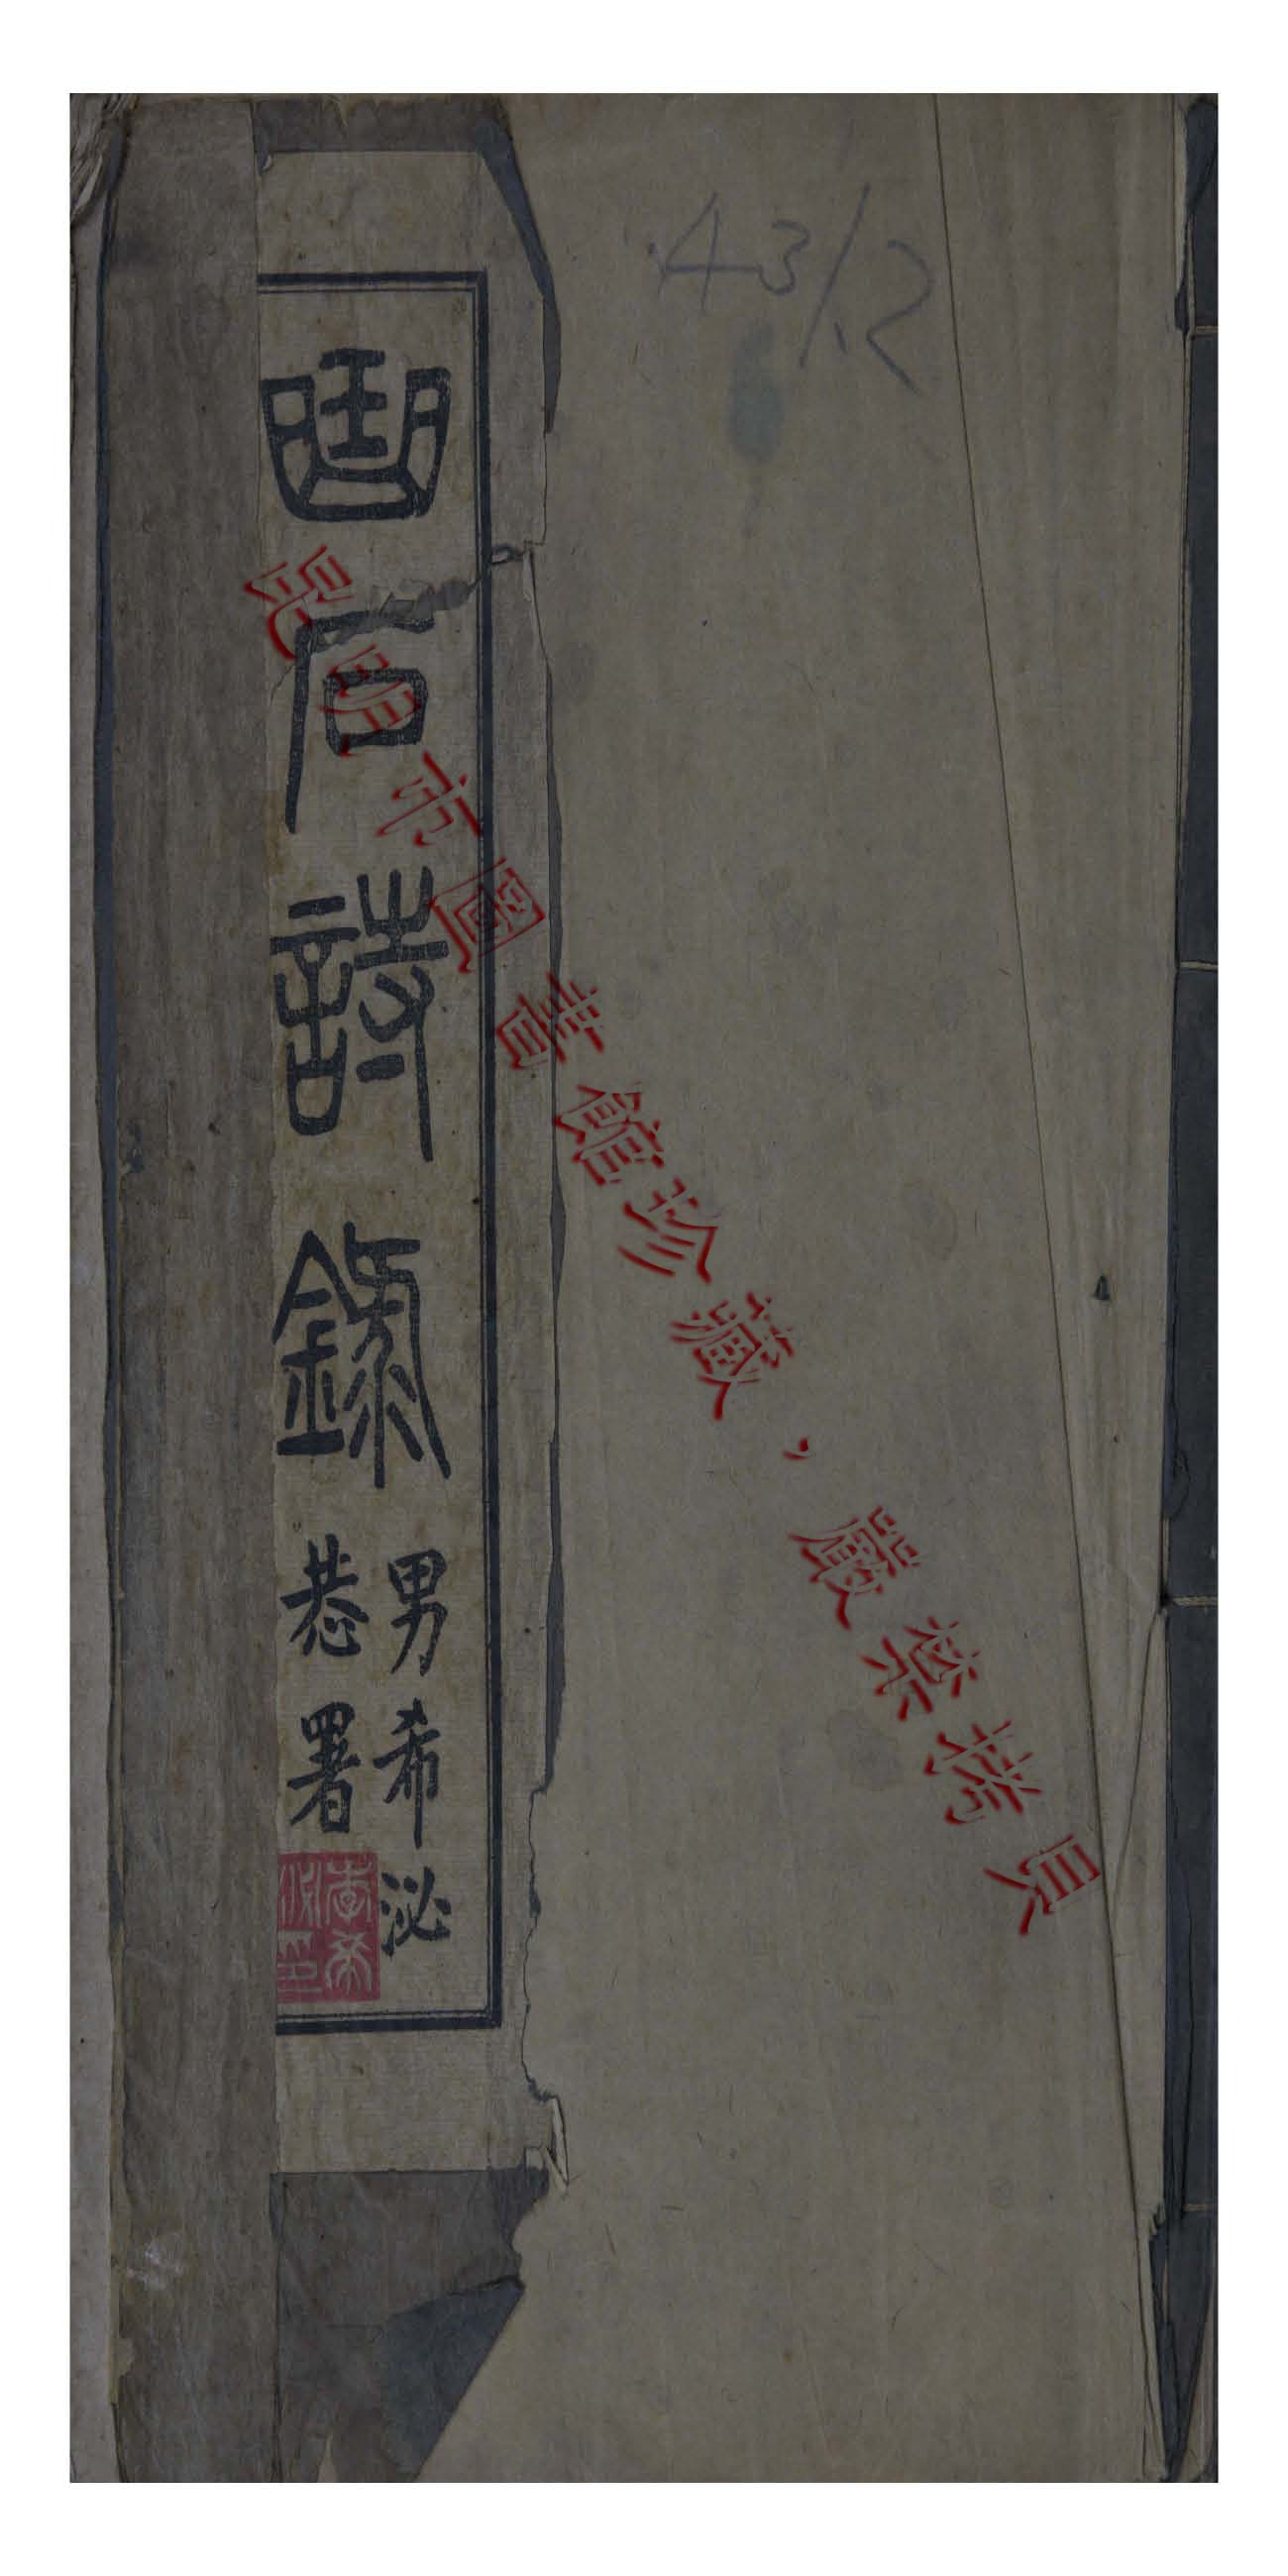 曲石詩錄
男希泌
恭署
李希泌印
昆明市圖書館珍藏，嚴禁拷貝